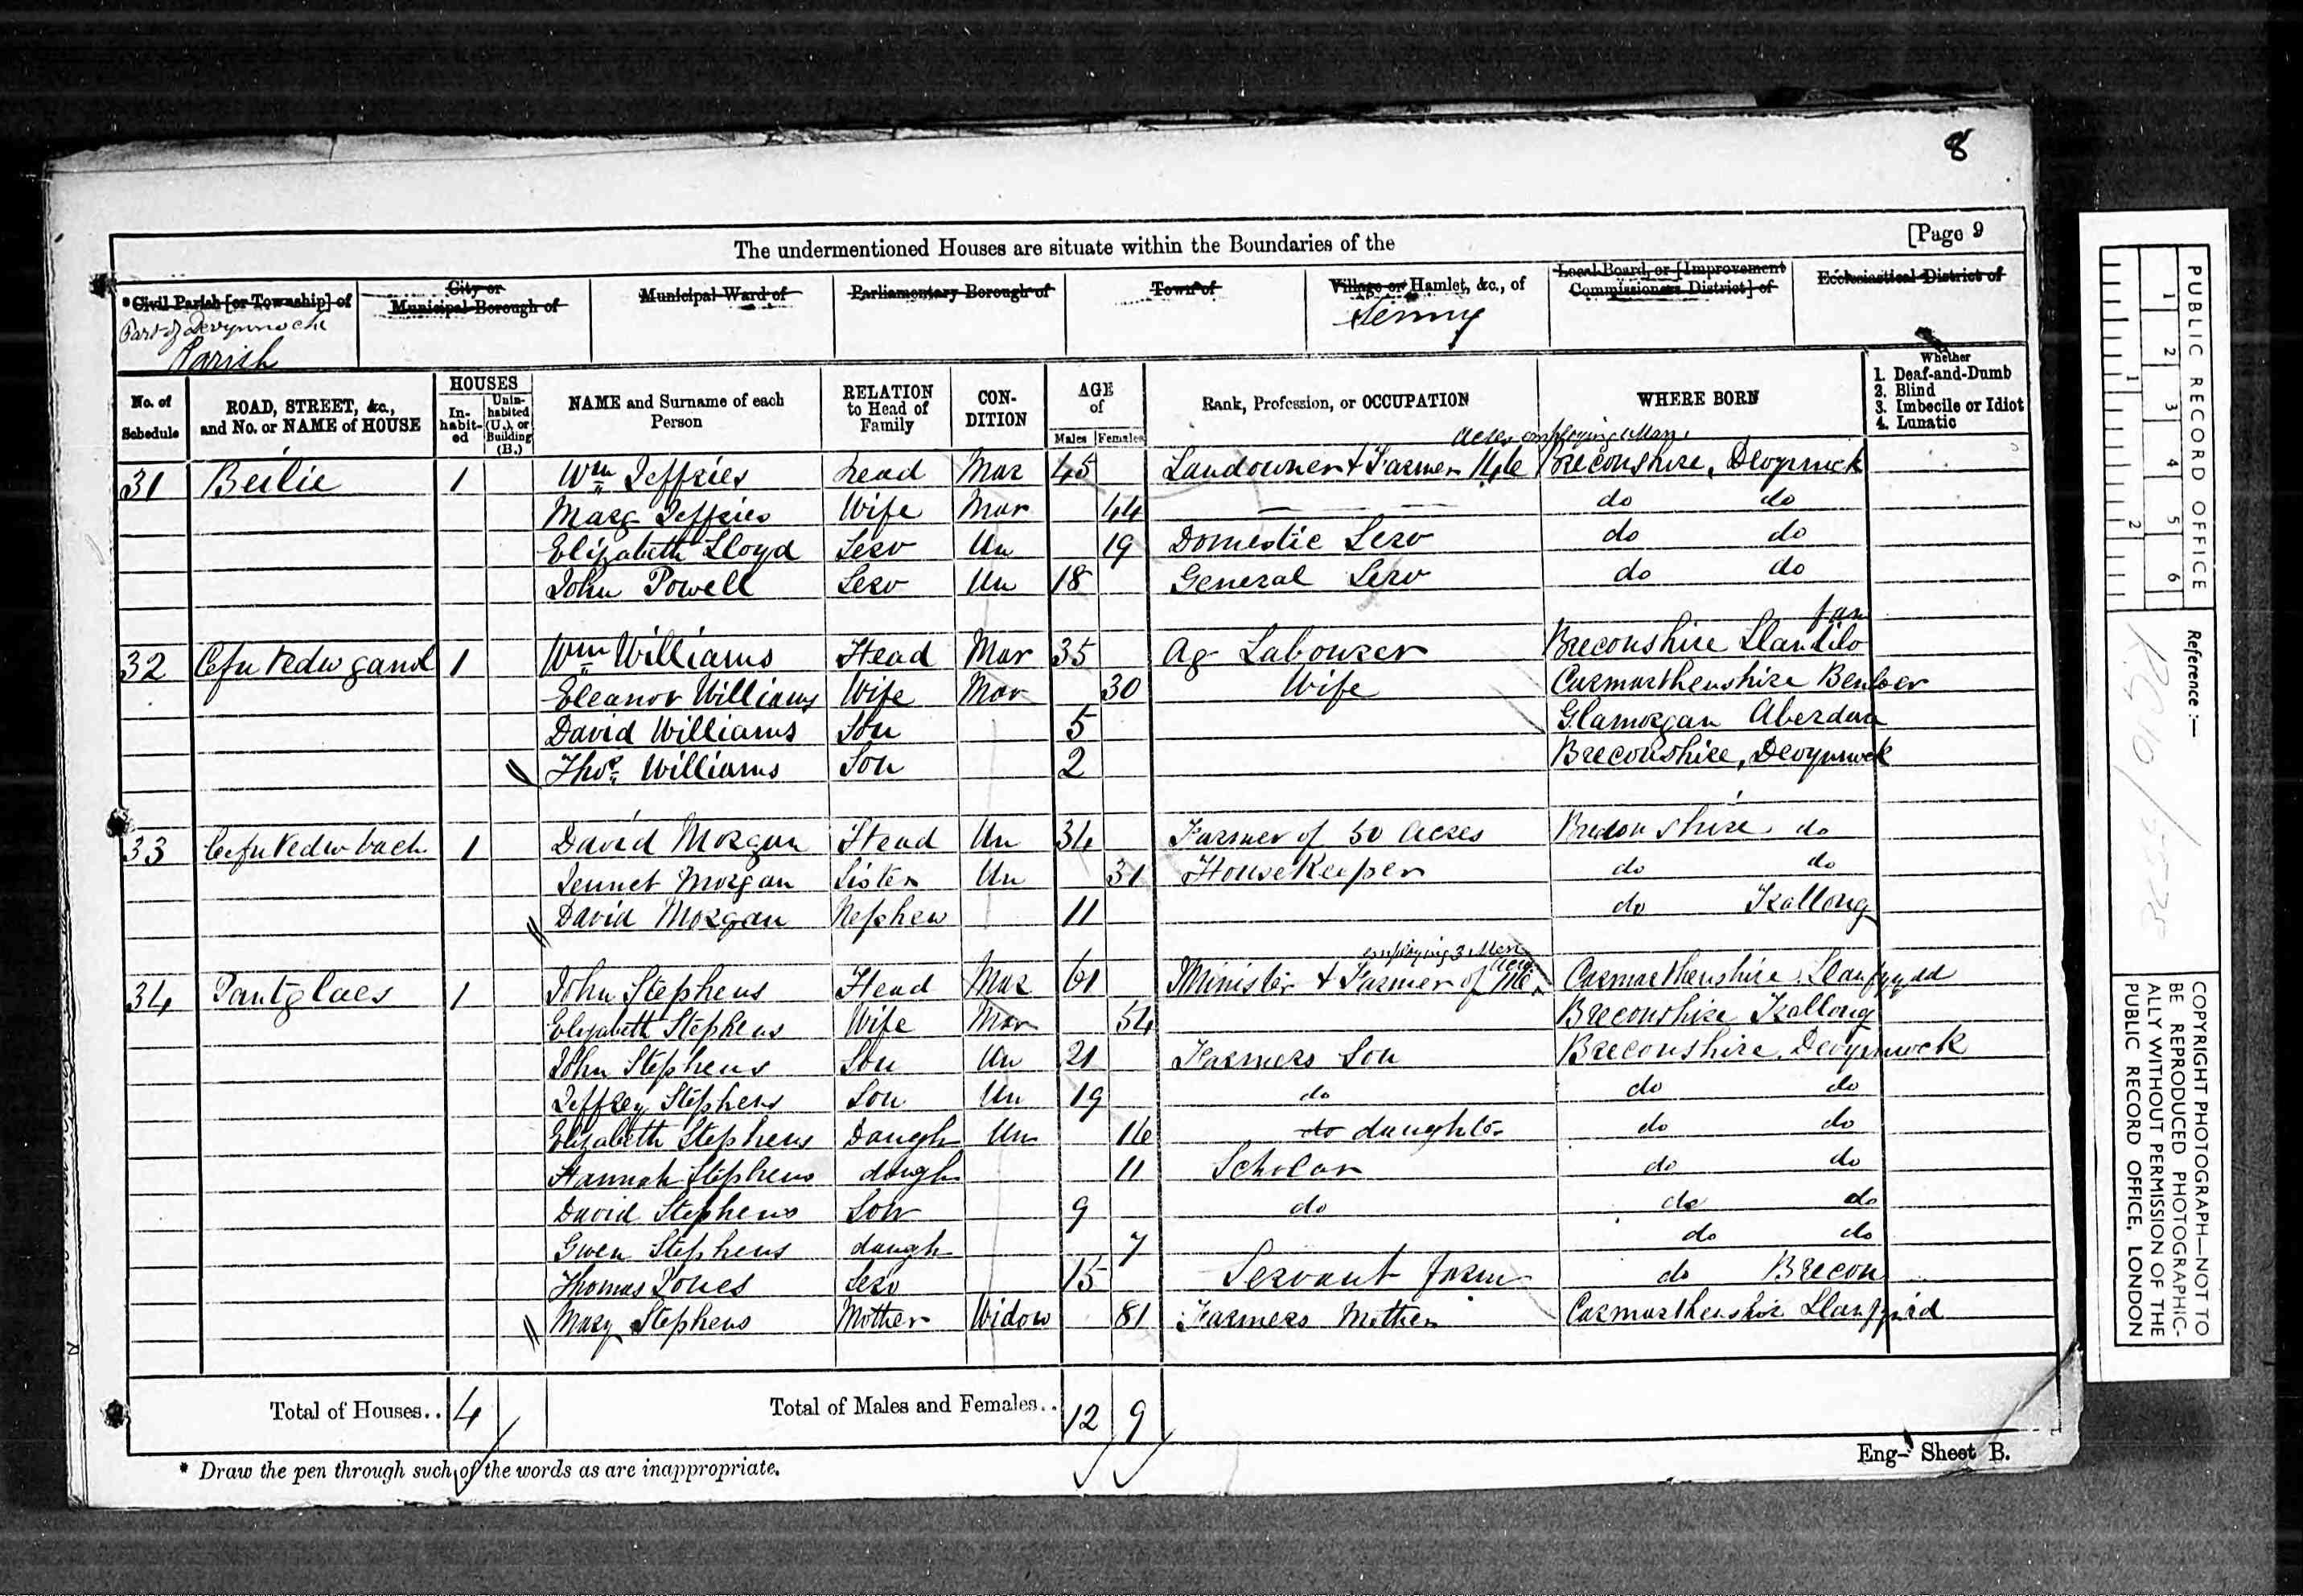 8
[Page 9
The undermentioned Houses are situate within the Boundaries of the
*Civil Parish [or Township] of
City or Municipal Borough of
Municipal Ward of
Parliamentary Borough of
Town of
Village or Hamlet, &c., of
Local Board, or [Improvement Commissioners District] of
Ecclesiastical District of
Part of Devynnock
Parish
Senny
No. of Schedule
ROAD, STREET, &c., and No. or NAME of HOUSE
HOUSES
In-habit-ed
Unin-habited (U.), or Building (B.)
NAME and Surname of each Person
RELATION to Head of Family
CON-DITION
AGE of
Males
Females
Rank, Profession, or OCCUPATION
WHERE BORN
Whether
1. Deaf-and-Dumb
2. Blind
3. Imbecile or Idiot
4. Lunatic
acres employing 1 Man
31 Beilie 1 Wm Jeffries head Mar 45 Landowner & Farmer 146 Breconshire, Devynnock
Marg Jeffries Wife Mar 44 do do
Elizabeth Lloyd Serv Un 19 Domestic Serv do do
John Powell Serv Un 18 General Serv do do
fan
32 Cefn Vedw ganol 1 Wm Williams Head Mar 35 Ag Labourer Breconshire Llandilo
Eleanor Williams Wife Mar 30 Wife Carmarthenshire
David Williams Son 5 Glamorgan Aberdare
Thos Williams Son 2 Breconshire, Devynnock
33 Cefn Vedw bach 1 David Morgan Head Un 34 Farmer of 50 acres Breconshire do
Jennet Morgan Sister Un 31 HouseKeeper do do
David Morgan Nephew 11 do Trallong
employing 3 Men
acres
34 Pantglaes 1 John Stephens Head Mar 61 Minister & Farmer of Carmarthenshire
Elizabeth Stephens Wife Mar 54 Breconshire Trallong
John Stephens Son Un 21 Farmers Son Breconshire, Devynnock
Jeffrey Stephens Son Un 19 do do do
Elizabeth Stephens Daugh Un 16 do daughter do do
Hannah Stephens daugh 11 Scholar do do
David Stephens Son 9 do do do
Gwen Stephens daugh 7 do do
Thomas Jones Serv 15 Servant farm do Brecon
Mary Stephens Mother Widow 81 Farmers Mother Carmarthenshire
Total of Houses.. 4
Total of Males and Females.. 12 9
* Draw the pen through such of the words as are inappropriate.
Eng- Sheet B.
PUBLIC RECORD OFFICE
1 2 3 4 5 6
1 2
Reference :—
RG 10/5578
COPYRIGHT PHOTOGRAPH—NOT TO
BE REPRODUCED PHOTOGRAPHIC-
ALLY WITHOUT PERMISSION OF THE
PUBLIC RECORD OFFICE, LONDON